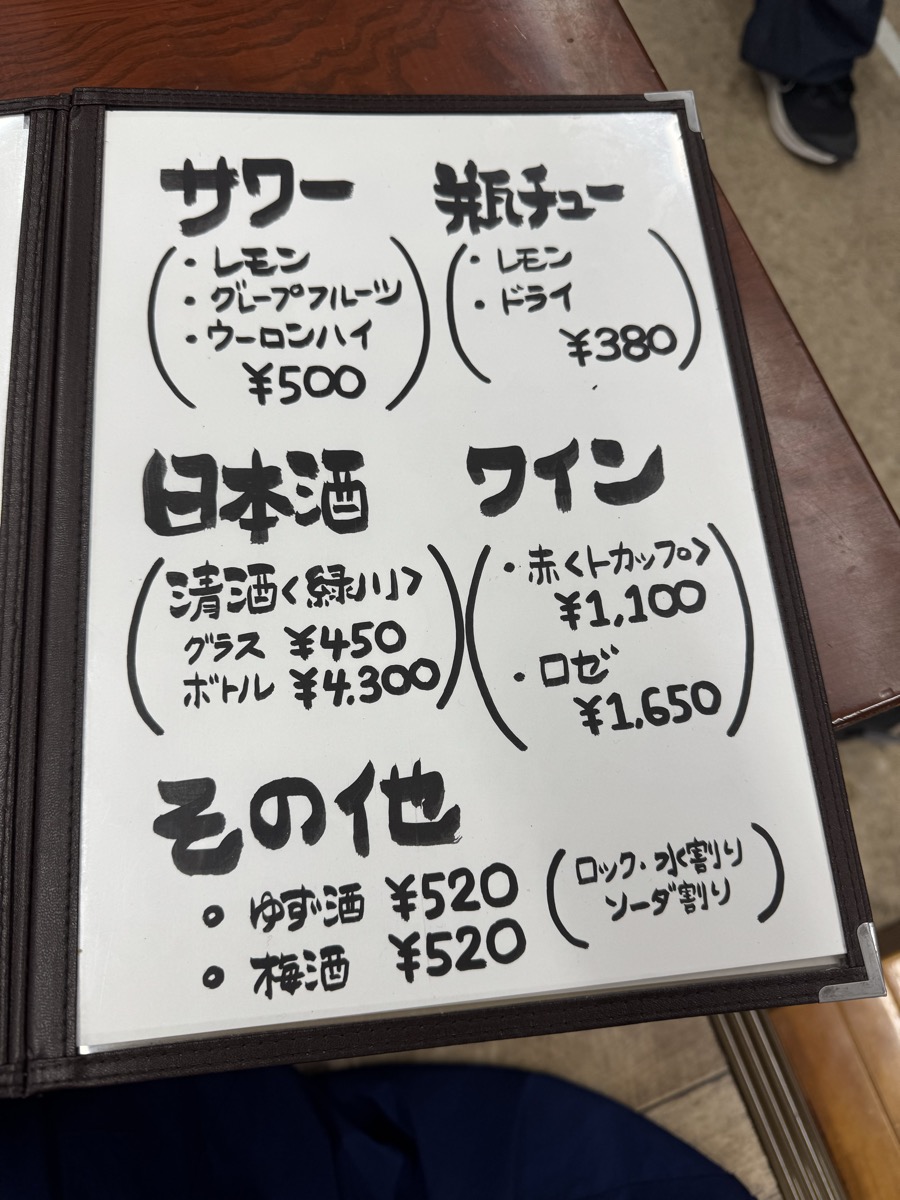 サワー
・レモン
・グレープフルーツ
・ウーロンハイ
¥500
瓶チュー
・レモン
・ドライ
¥380
日本酒
清酒<緑川>
グラス ¥450
ボトル ¥4.300
ワイン
・赤<トカップ>
¥1,100
・ロゼ
¥1,650
その他
○ ゆず酒 ¥520
○ 梅酒 ¥520
(ロック・水割り
ソーダ割り)